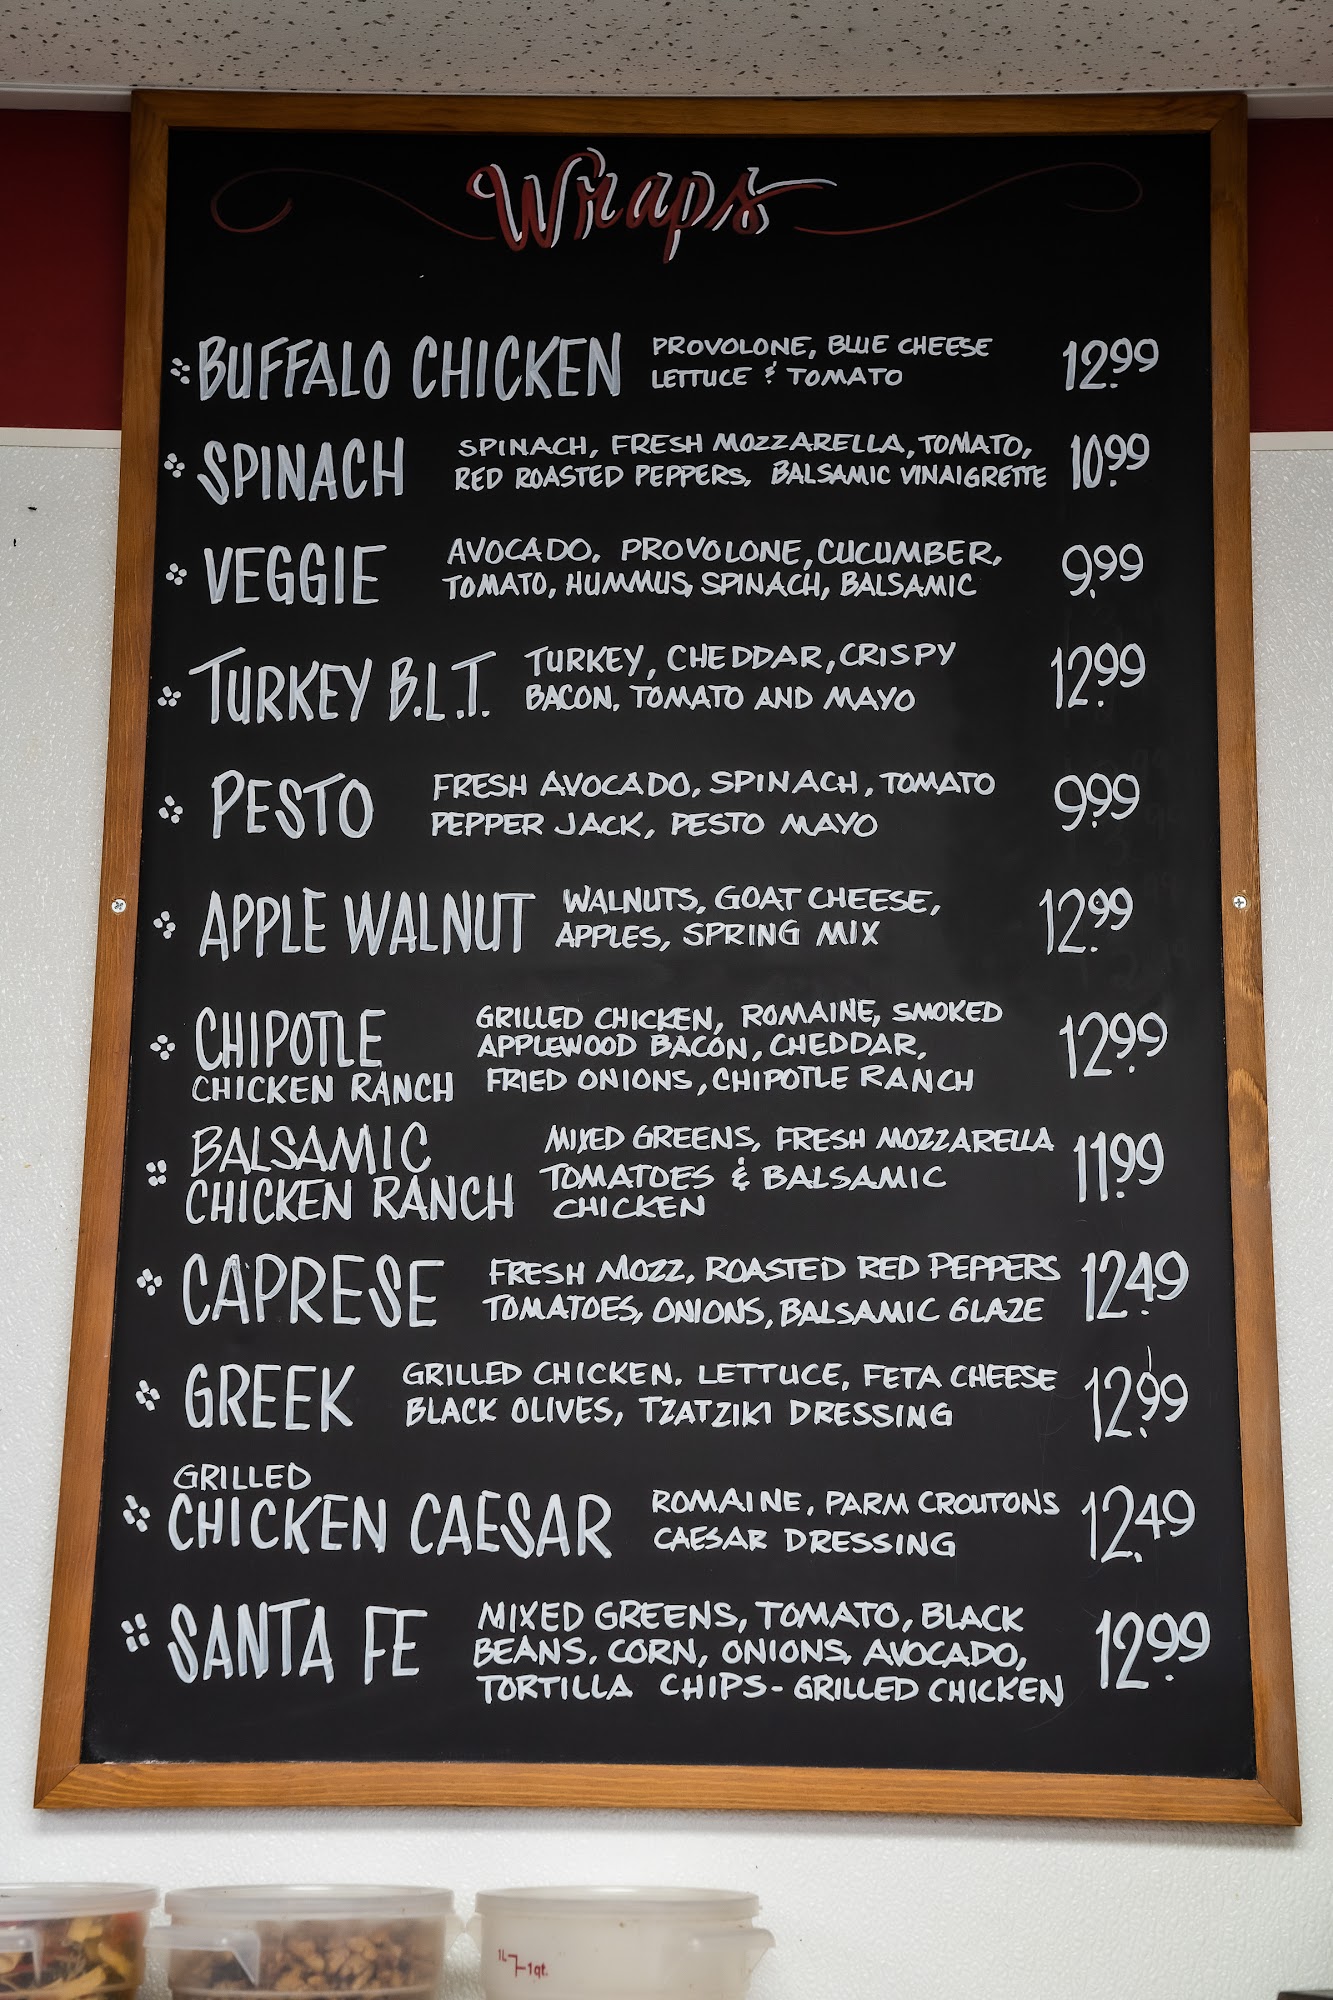 Wraps
BUFFALO CHICKEN
PROVOLONE, BLUE CHEESE
LETTUCE & TOMATO
12.99
SPINACH
SPINACH, FRESH MOZZARELLA, TOMATO,
RED ROASTED PEPPERS, BALSAMIC VINAIGRETTE
10.99
VEGGIE
AVOCADO, PROVOLONE, CUCUMBER,
TOMATO, HUMMUS, SPINACH, BALSAMIC
9.99
TURKEY B.L.T.
TURKEY, CHEDDAR, CRISPY
BACON, TOMATO AND MAYO
12.99
PESTO
FRESH AVOCADO, SPINACH, TOMATO
PEPPER JACK, PESTO MAYO
9.99
APPLE WALNUT
WALNUTS, GOAT CHEESE,
APPLES, SPRING MIX
12.99
CHIPOTLE
CHICKEN RANCH
GRILLED CHICKEN, ROMAINE, SMOKED
APPLEWOOD BACON, CHEDDAR,
FRIED ONIONS, CHIPOTLE RANCH
12.99
BALSAMIC
CHICKEN RANCH
MIXED GREENS, FRESH MOZZARELLA
TOMATOES & BALSAMIC
CHICKEN
11.99
CAPRESE
FRESH MOZZ, ROASTED RED PEPPERS
TOMATOES, ONIONS, BALSAMIC GLAZE
12.49
GREEK
GRILLED CHICKEN, LETTUCE, FETA CHEESE
BLACK OLIVES, TZATZIKI DRESSING
12.99
GRILLED
CHICKEN CAESAR
ROMAINE, PARM CROUTONS
CAESAR DRESSING
12.49
SANTA FE
MIXED GREENS, TOMATO, BLACK
BEANS, CORN, ONIONS, AVOCADO,
TORTILLA CHIPS - GRILLED CHICKEN
12.99
1L 1qt.